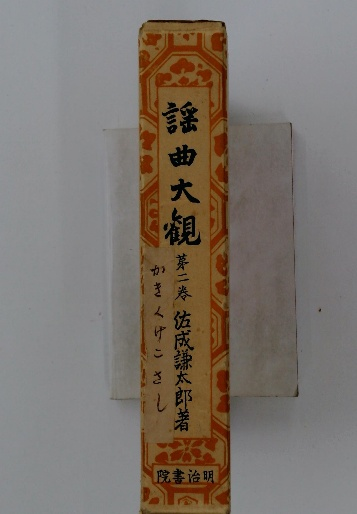 謡曲大観
第二巻
佐成謙太郎著
かきくけこさし
院書治明